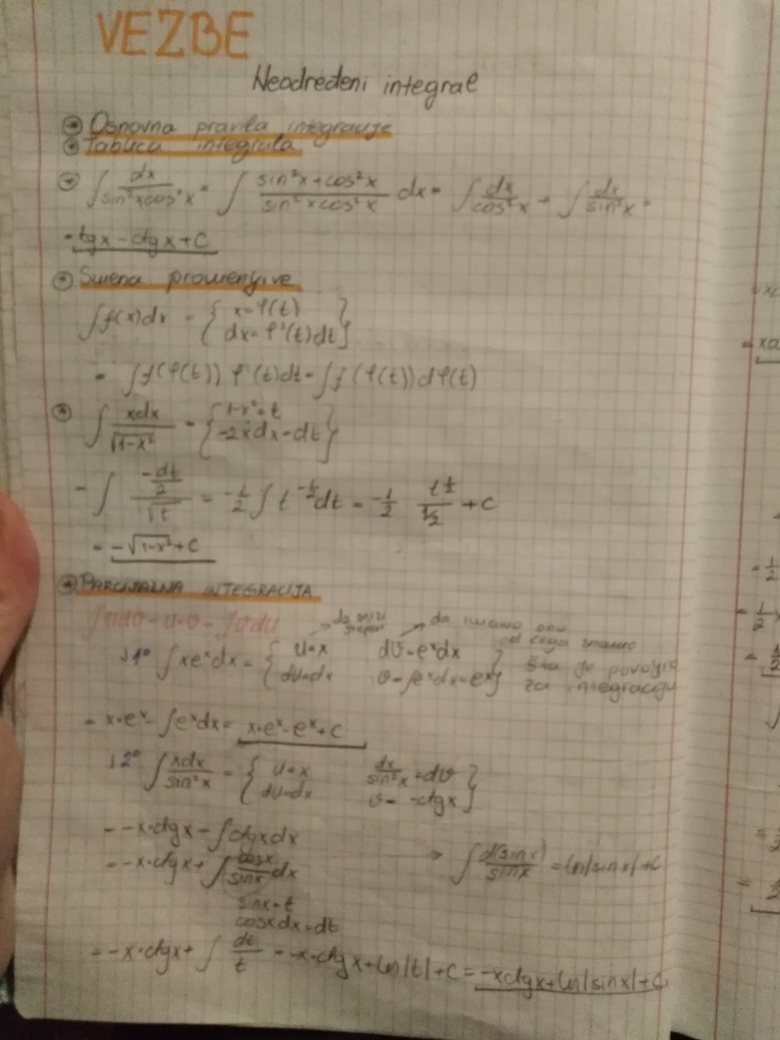 VEZBE
Neodređeni integral
Osnovna pravila integracije
Tablica integrala
∫ dx/(sin²x cos²x) = ∫ (sin²x + cos²x)/(sin²x cos²x) dx = ∫ dx/cos²x + ∫ dx/sin²x =
= tgx - ctgx + C
Smena promenjive
∫f(x)dx = { x = φ(t)
dx = φ'(t)dt }
= ∫f(φ(t)) φ'(t)dt = ∫f(φ(t))dφ(t)
∫ xdx/√(1-x²) = { 1-x² = t
-2xdx = dt }
= ∫ (-dt/2)/√t = -1/2 ∫ t^(-1/2) dt = -1/2 t^(1/2)/(1/2) + C
= -√(1-x²) + C
PARCIJALNA INTEGRACIJA
∫udv = u·v - ∫vdu
da snizi stepen
da imamo ono
od čega znamo
šta je povoljno
za integraciju
1° ∫xeˣdx = { u = x dv = eˣdx
du = dx v = ∫eˣdx = eˣ }
= x·eˣ - ∫eˣdx = x·eˣ - eˣ + C
2° ∫ xdx/sin²x = { u = x dx/sin²x = dv
du = dx v = -ctgx }
= -x·ctgx - ∫ctgxdx
= -x·ctgx + ∫ cosx/sinx dx → ∫ d(sinx)/sinx = ln|sinx| + C
sinx = t
cosxdx = dt
= -x·ctgx + ∫ dt/t = -x·ctgx + ln|t| + C = -xctgx + ln|sinx| + C